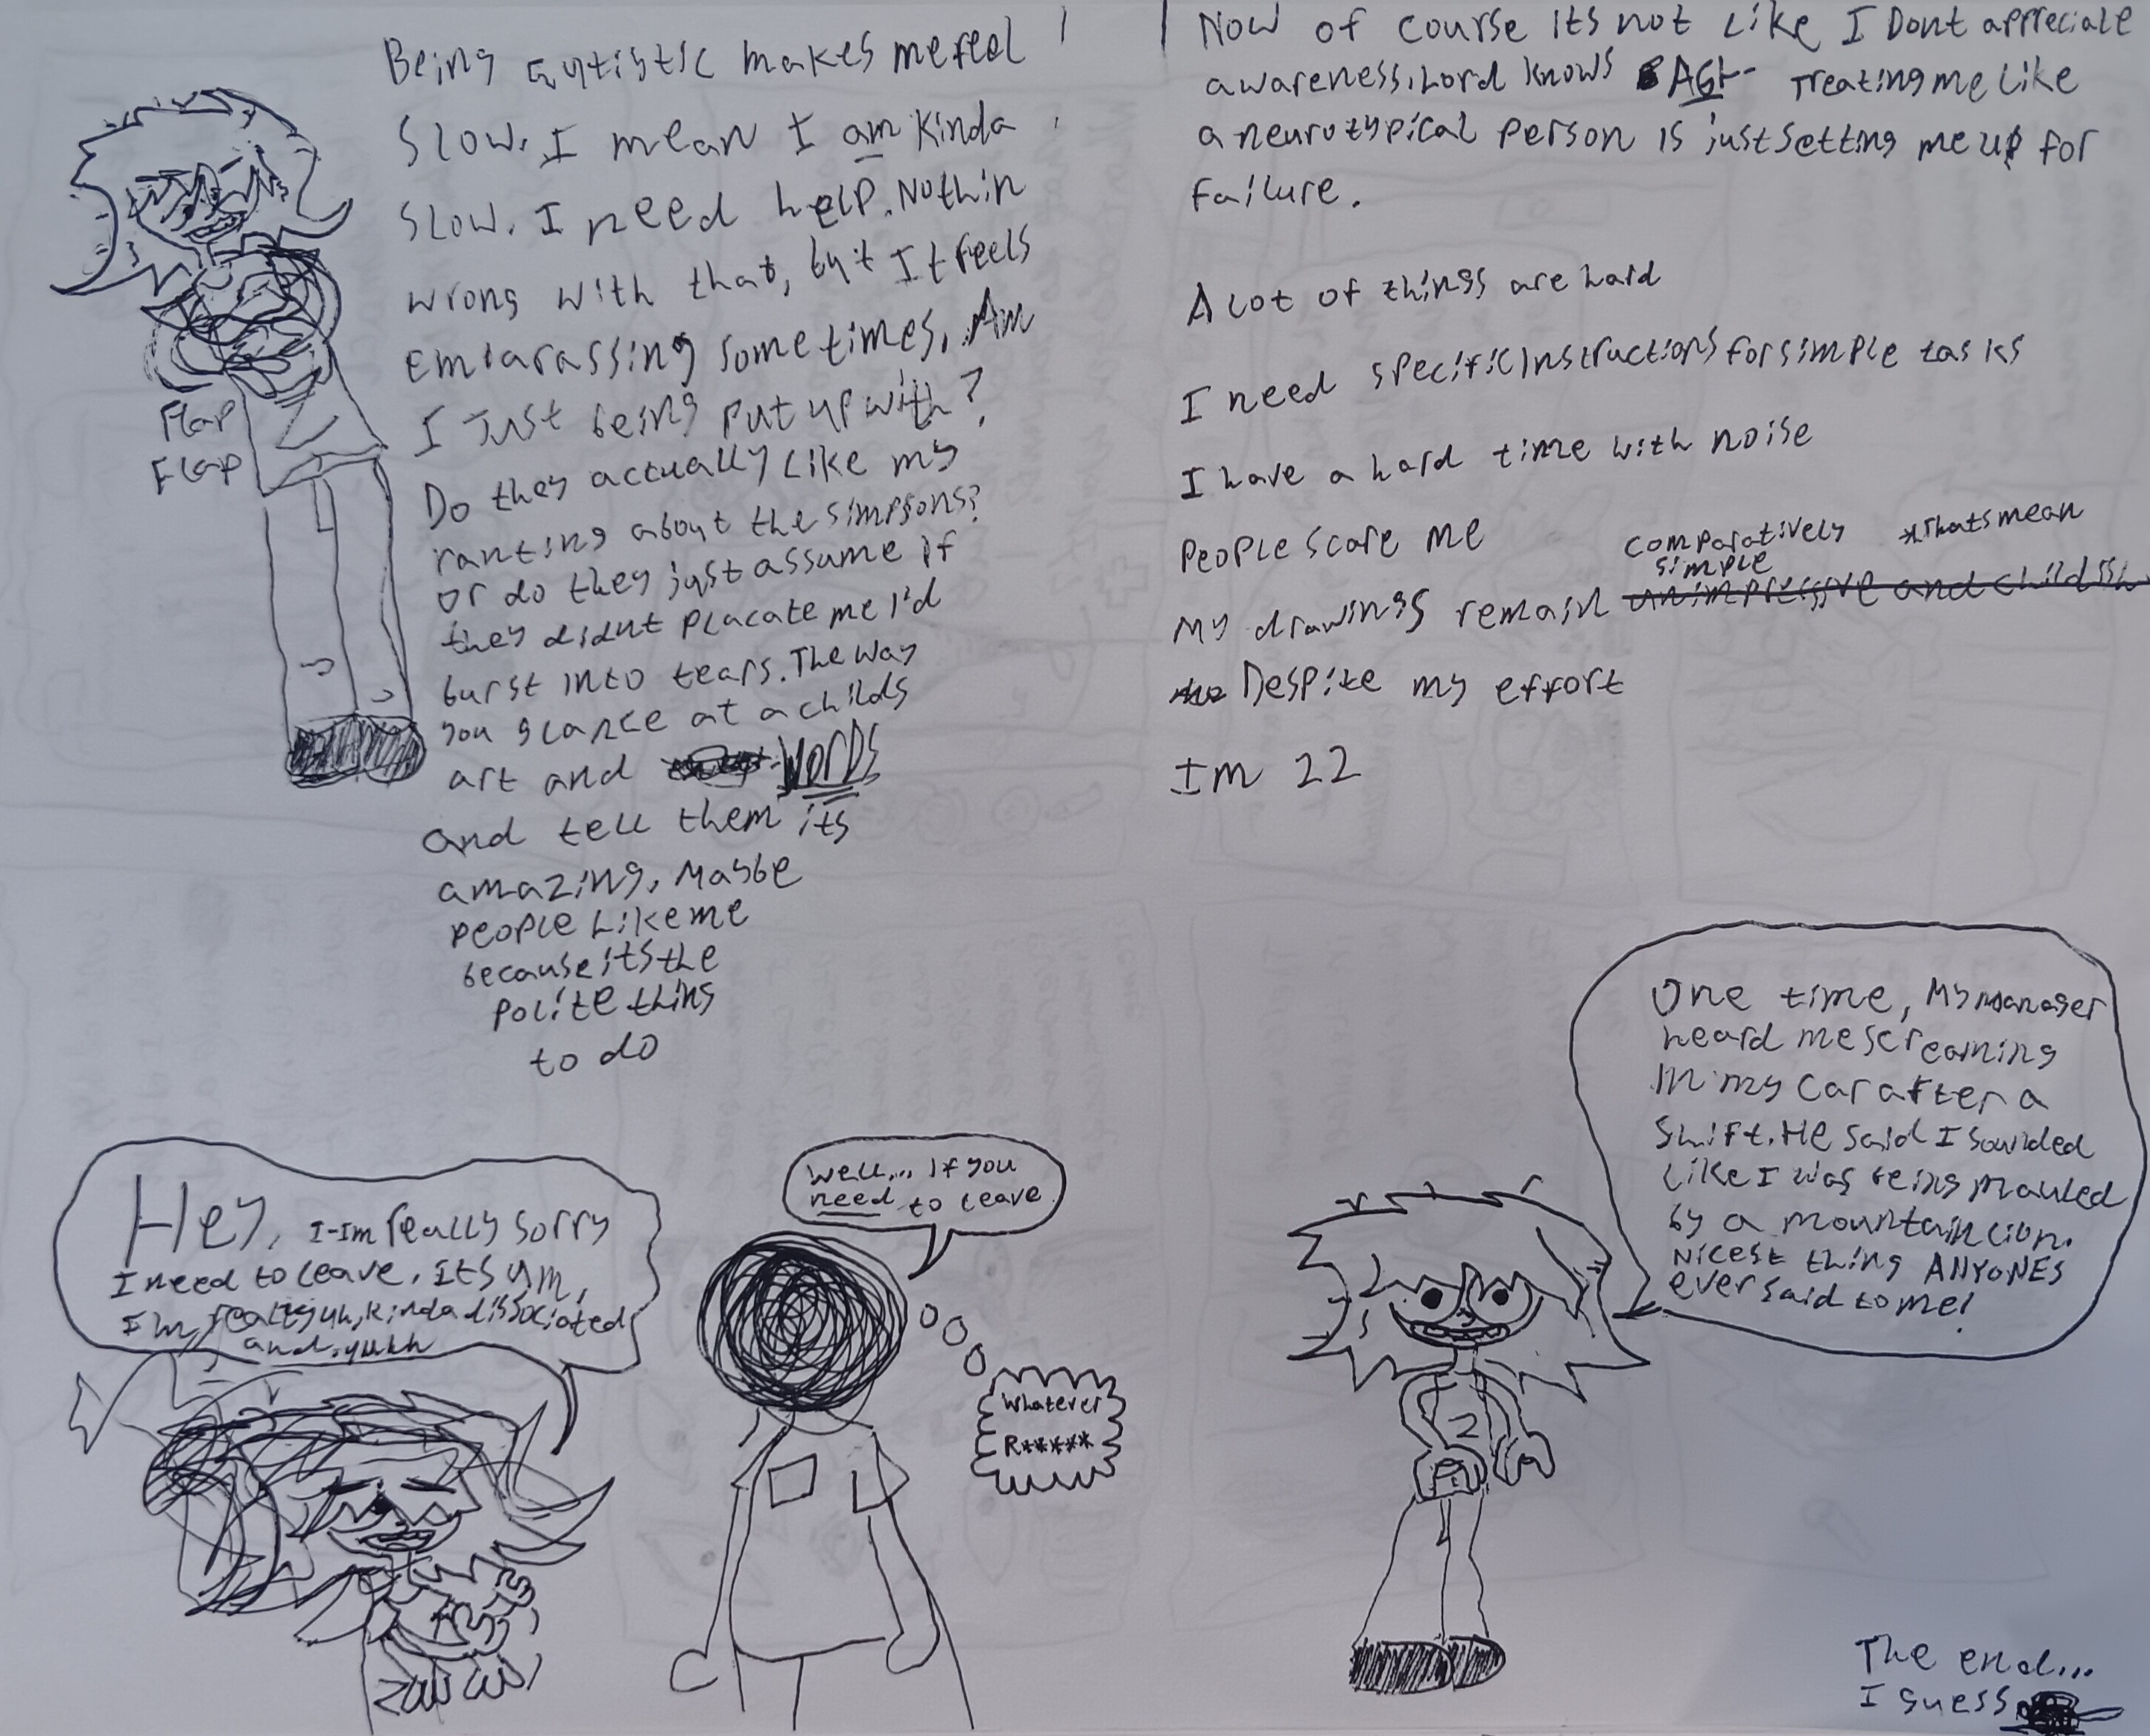 Being autistic makes me feel
slow. I mean I am kinda
slow. I need help. Nothin
wrong with that, but It feels
embarassing sometimes. Am
I Just being put up with?
Do they actually like my
ranting about the simpsons?
or do they just assume if
they didnt placate me I'd
burst into tears. The way
you glance at a childs
art and words
and tell them its
amazing. Maybe
people like me
because its the
polite thing
to do
Flap
Flap
Now of course its not like I Dont appreciate
awareness. Lord knows treating me like
a neurotypical person is just setting me up for
failure.
A lot of things are hard
I need specific instructions for simple tasks
I have a hard time with noise
People scare me
comparatively *thats mean
simple
My drawings remain unimpressive and childish
Despite my effort
Im 22
Hey, I-Im really sorry
I need to leave. Its um,
Im really uh, kinda dissociated
and. yukh
Well... If you
need to leave
Whatever
R*****
One time, My manager
heard me screaming
In my car after a
shift. He said I sounded
like I was being mauled
by a mountain lion.
Nicest thing ANYONES
ever said to me!
The end...
I guess